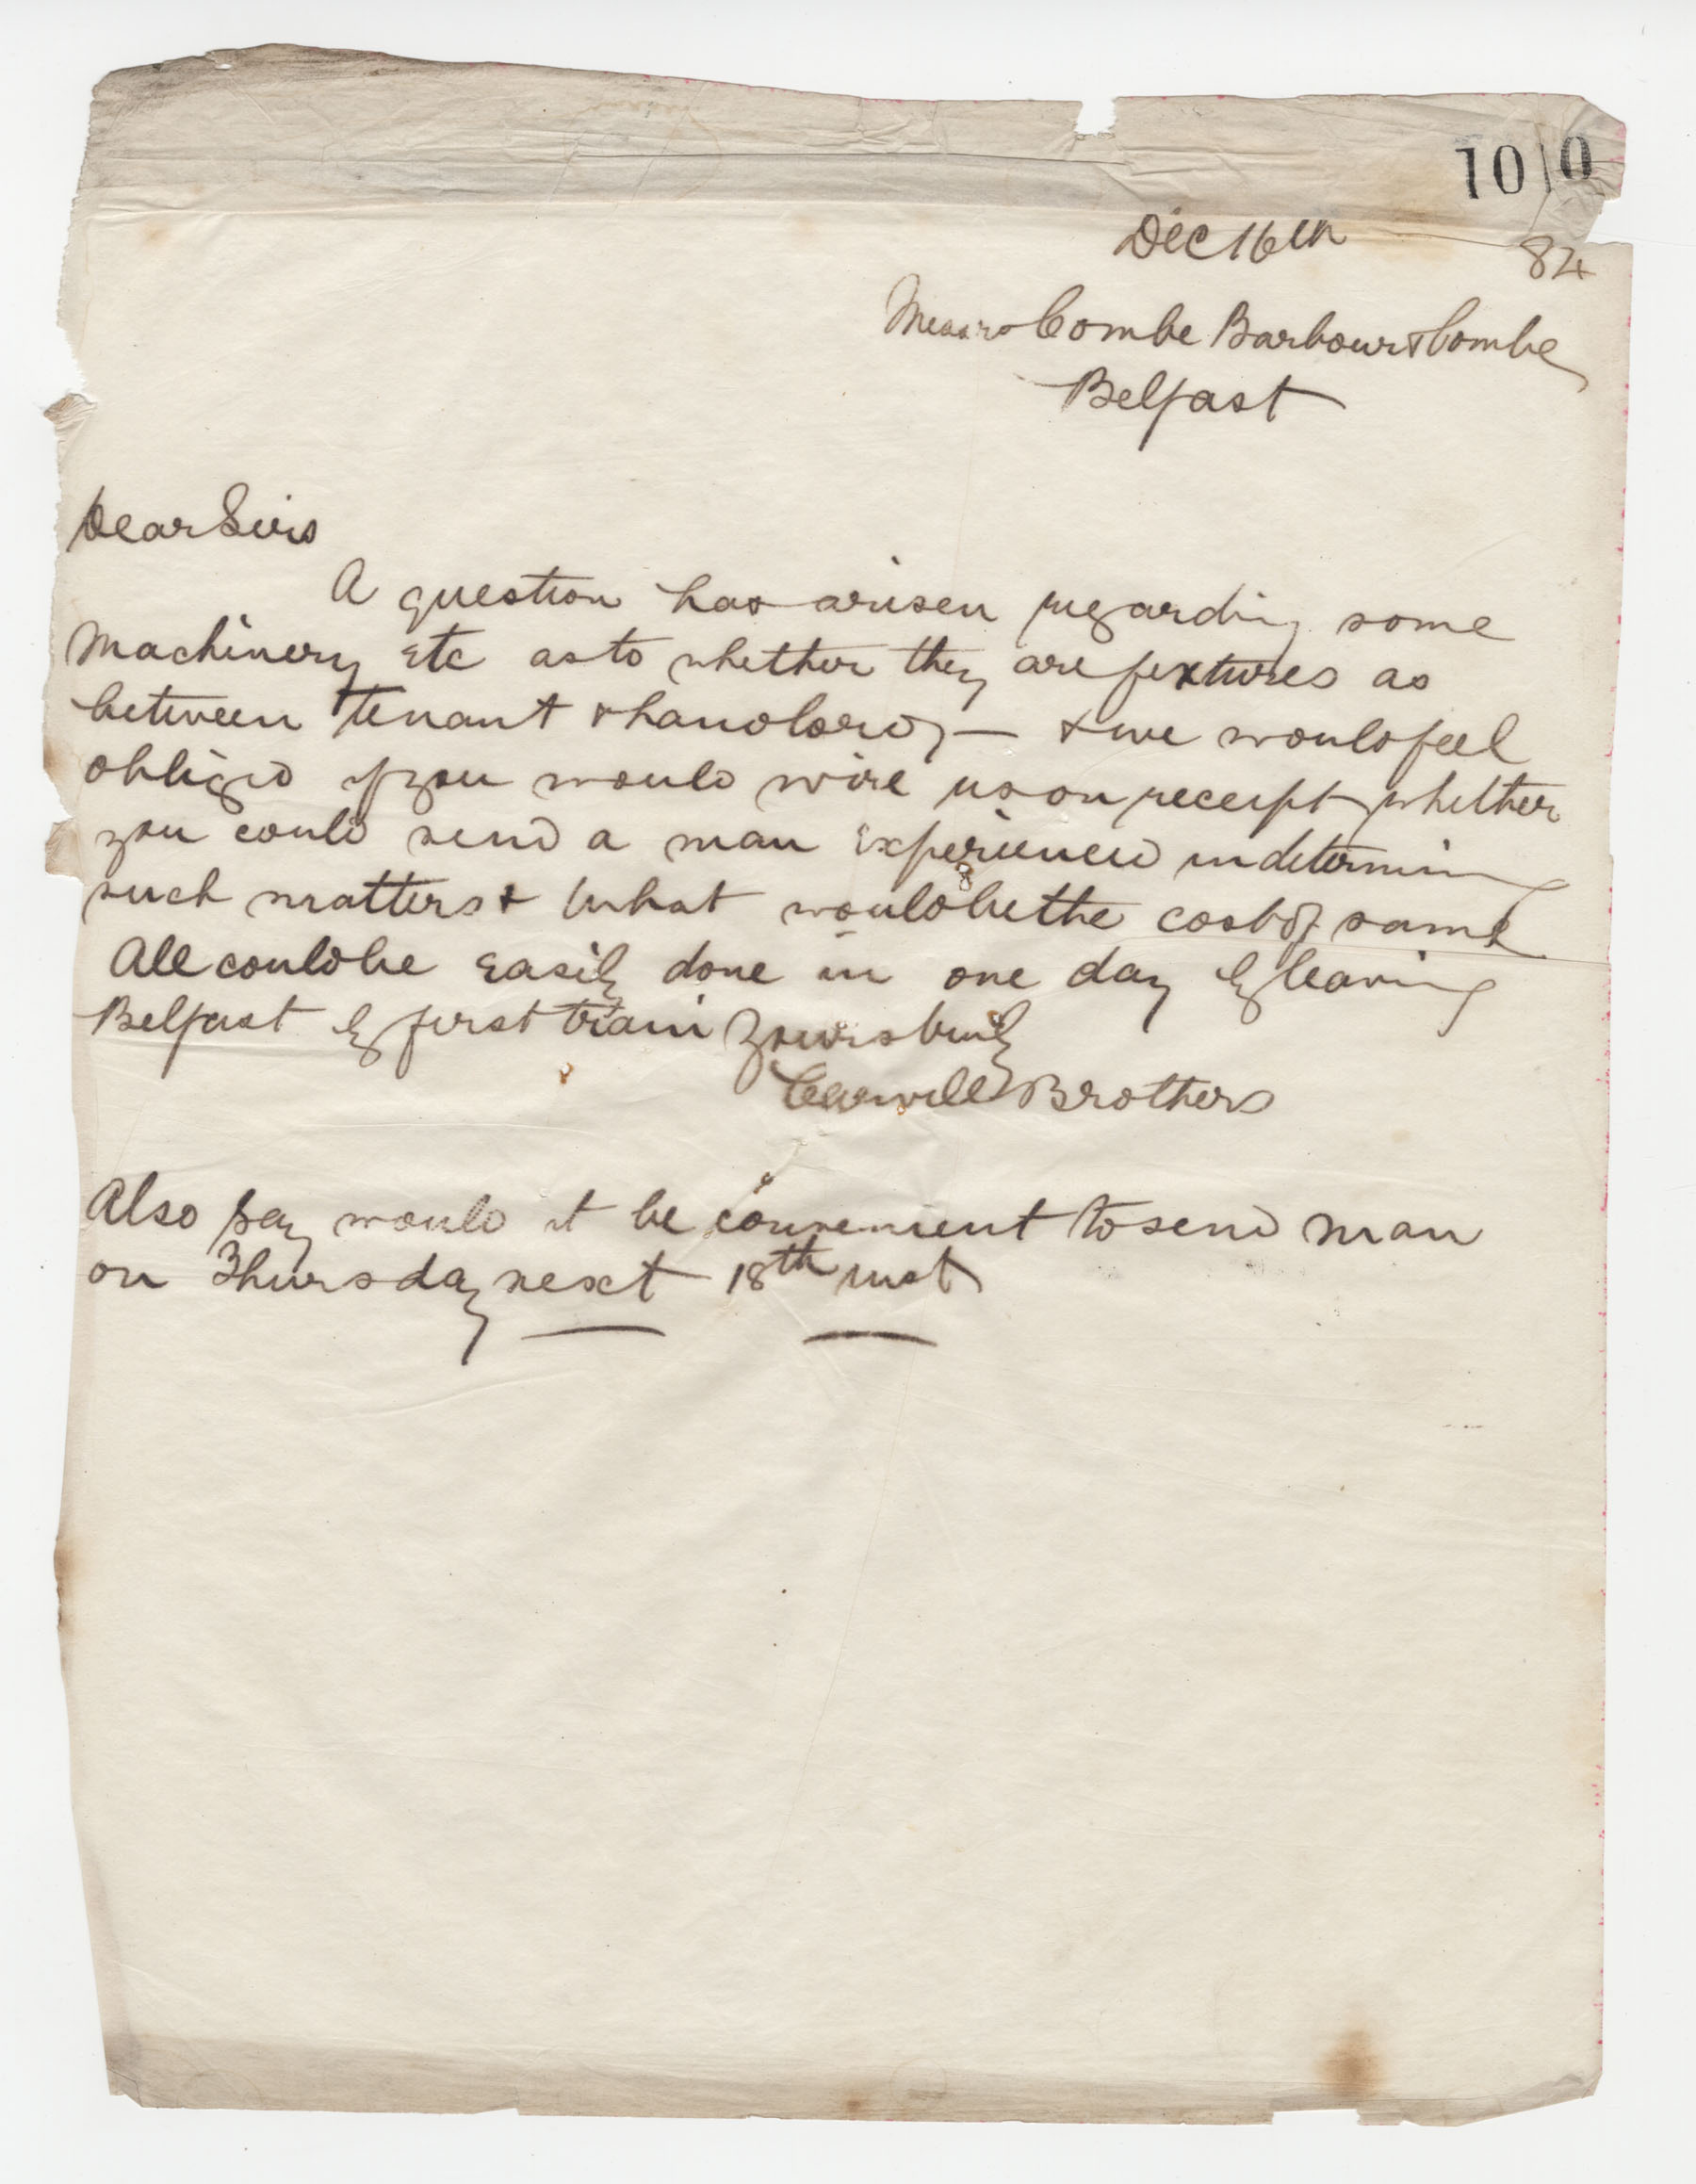 1010
Dec 16th 84
Messrs Combe Barbour & Combe
Belfast
Dear Sirs
A question has arisen regarding some
Machinery etc as to whether they are fixtures as
between tenant & Landlord, — & we would feel
obliged if you would wire us on receipt whether
you could send a man experienced in determining
such matters & what would be the cost of same
All could be easily done in one day by leaving
Belfast by first train Yours truly
Brothers
Also say would it be convenient to send man
on Thursday next 18th inst